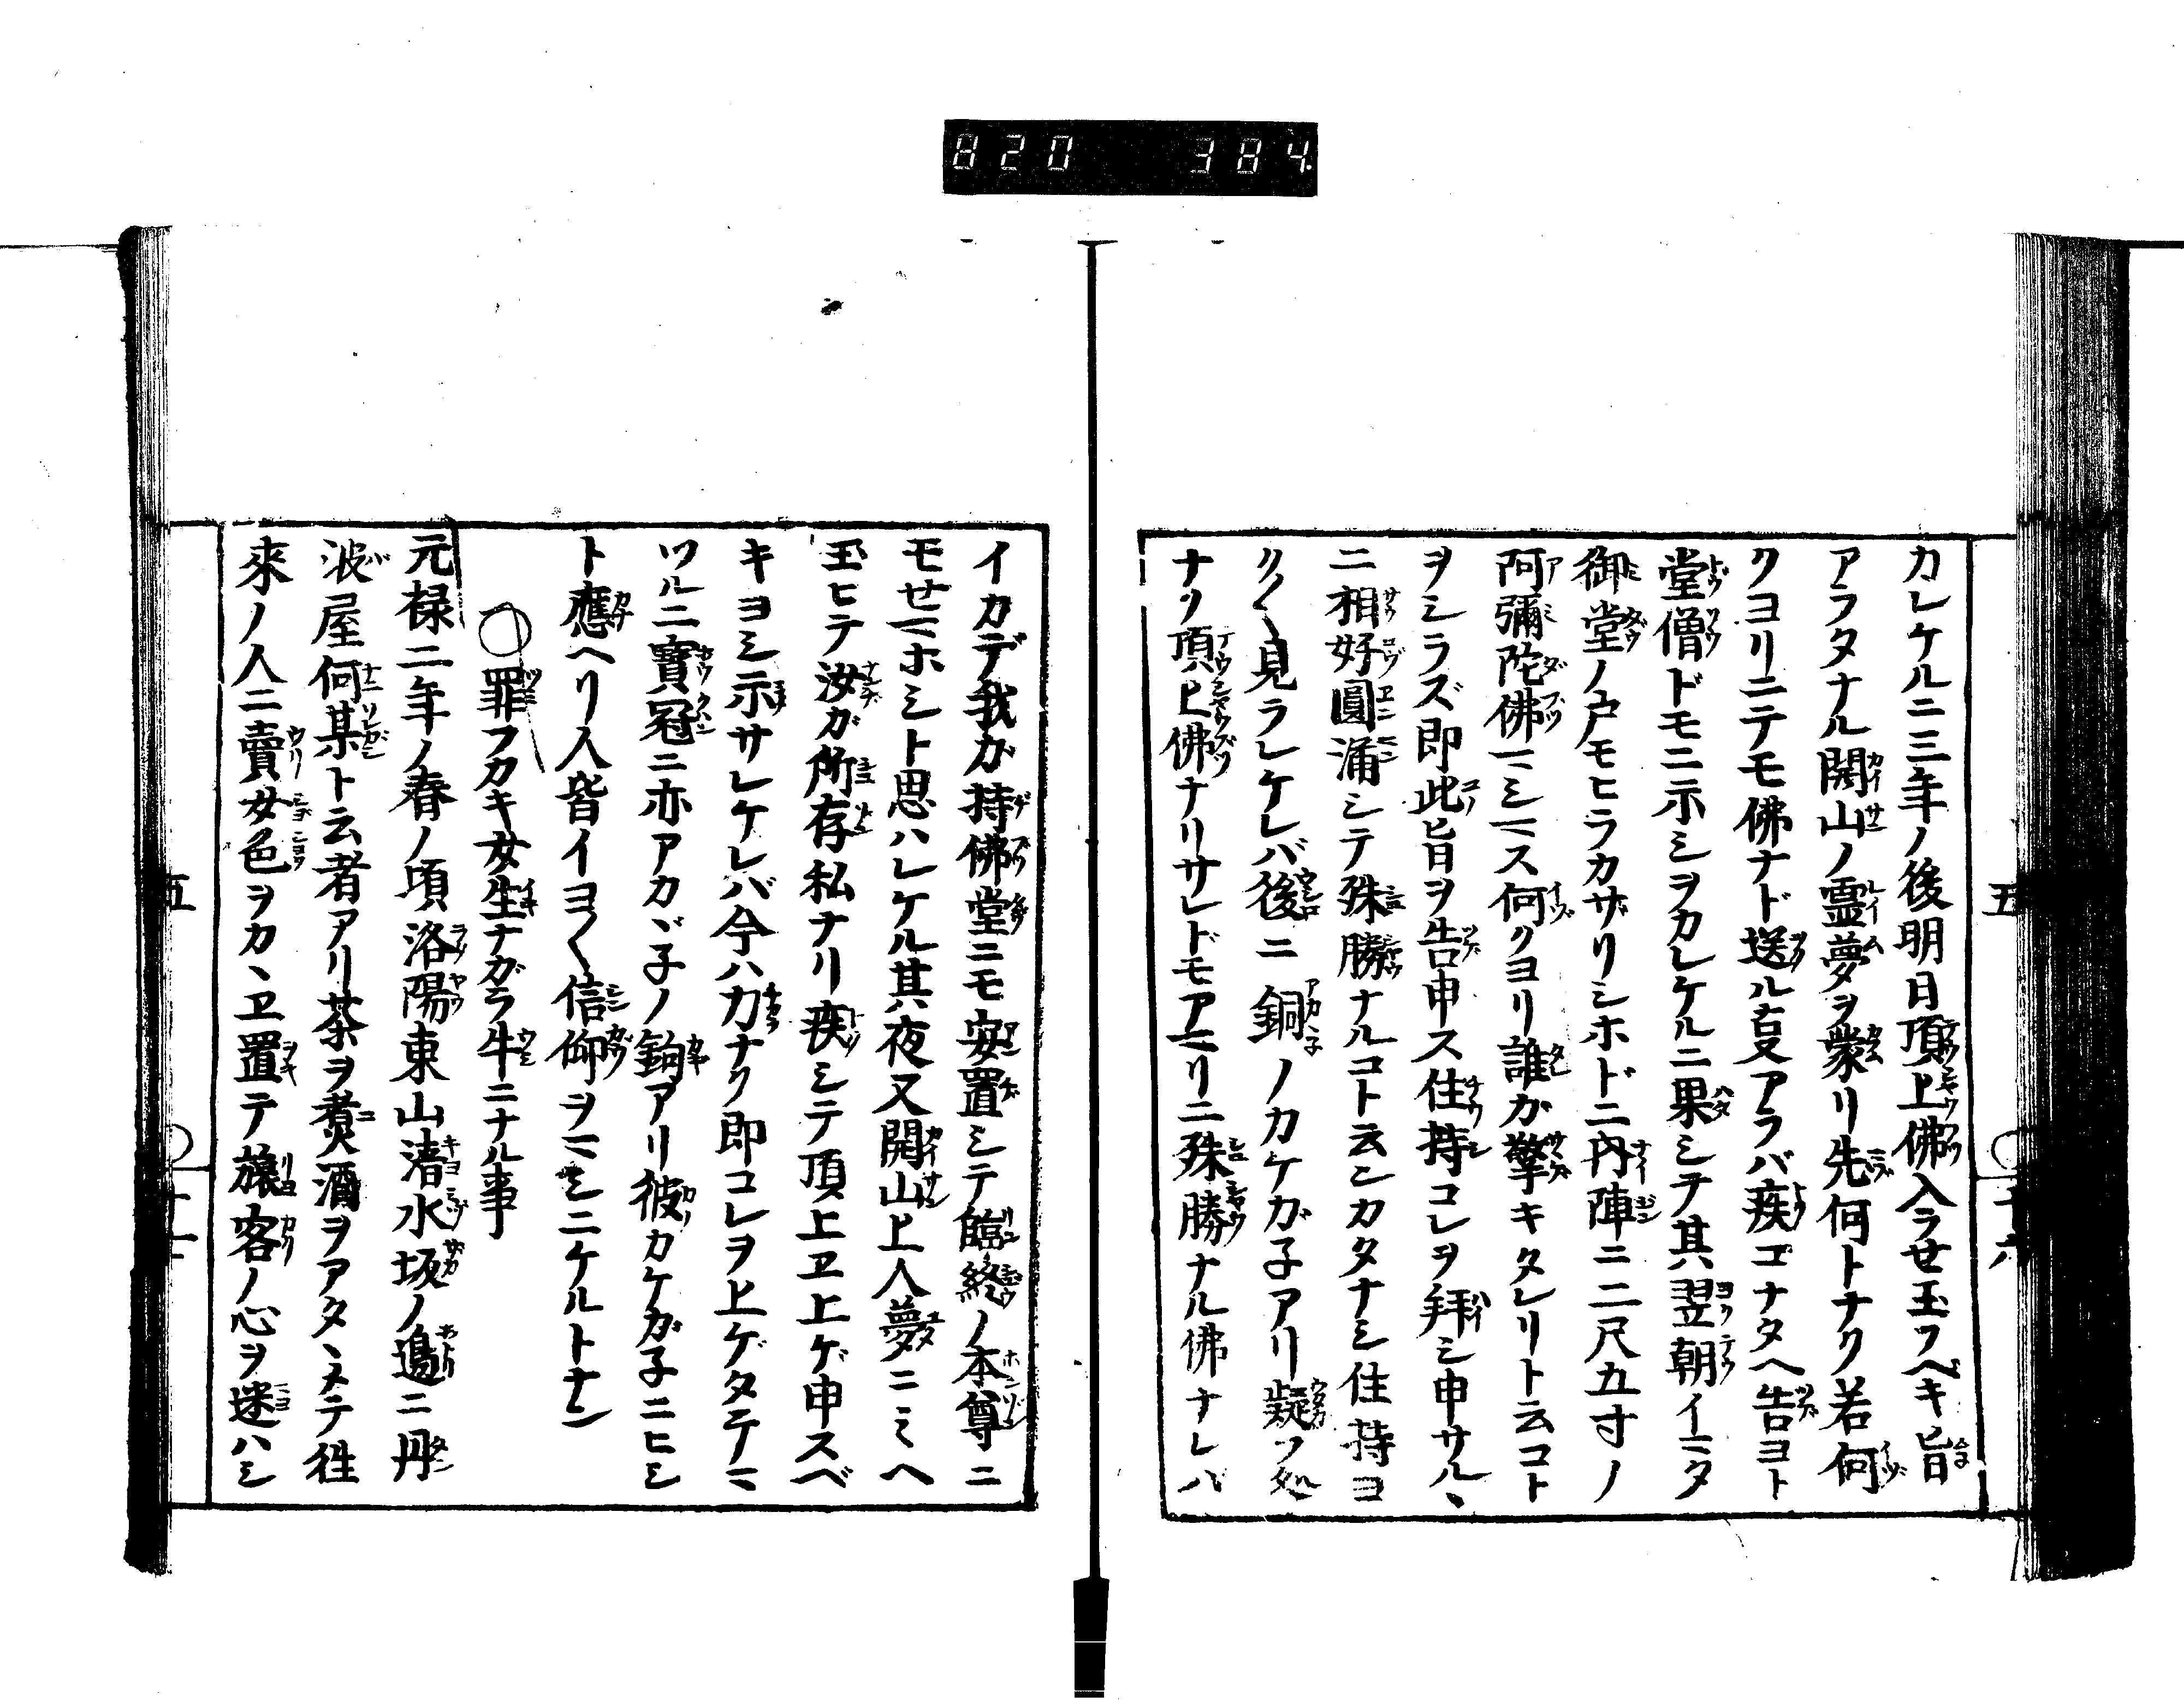 820 384.
カレケルニ三年ノ後明日頂上佛入ラせ玉フベキ旨
アラタナル開山ノ霊夢ヲ蒙リ先何トナク若何
クヨリニテモ佛ナド送ル叓アラバ疾コナタヘ告ヨト
堂僧ドモニ示シヲカレケルニ果シテ其翌朝イマタ
御堂ノ戸モヒラカザリシホドニ内陣ニ二尺五寸ノ
阿彌陀佛マシマス何クヨリ誰カ擎キタレリト云コト
ヲシラズ即此旨ヲ告申ス住持コレヲ拜シ申サルヽ
ニ相好圓滿シテ殊勝ナルコト云ンカタナシ住持ヨ
ク〱見ラレケレバ後ニ銅ノカケガ子アリ疑フ処
ナク頂上佛ナリサレドモアマリニ殊勝ナル佛ナレバ
イカデ我カ持佛堂ニモ安置シテ臨終ノ本尊ニ
モせマホシト思ハレケル其夜又開山上人夢ニミヘ
玉ヒテ汝ガ所存私ナリ疾シテ頂上ヱ上ゲ申スベ
キヨシ示サレケレバ今ハ力ナク即コレヲ上ゲタテマ
ツルニ寳冠ニ亦アカヾ子ノ鉤アリ彼カケガ子ニヒシ
ト應ヘリ人皆イヨ〱信仰ヲマシニケルトナン
○罪フカキ女生ナガラ牛ニナル事
元禄二年ノ春ノ頃洛陽東山清水坂ノ邊ニ丹
波屋何某ト云者アリ茶ヲ煑酒ヲアタヽメテ徃
來ノ人ニ賣女色ヲカヽヱ置テ旅客ノ心ヲ迷ハシ
五
○二十六
五